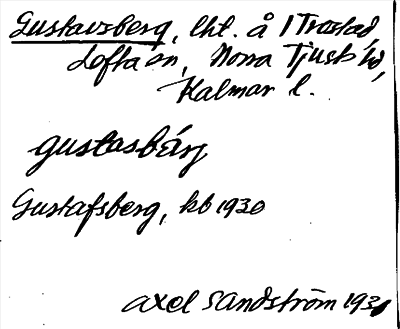 Gustavsberg, lht. å 1 Trostad,
Lofta sn, Norra Tjusts hd,
Kalmar l.
gustasbärj
Gustafsberg, kb 1930
Axel Sandström 1931